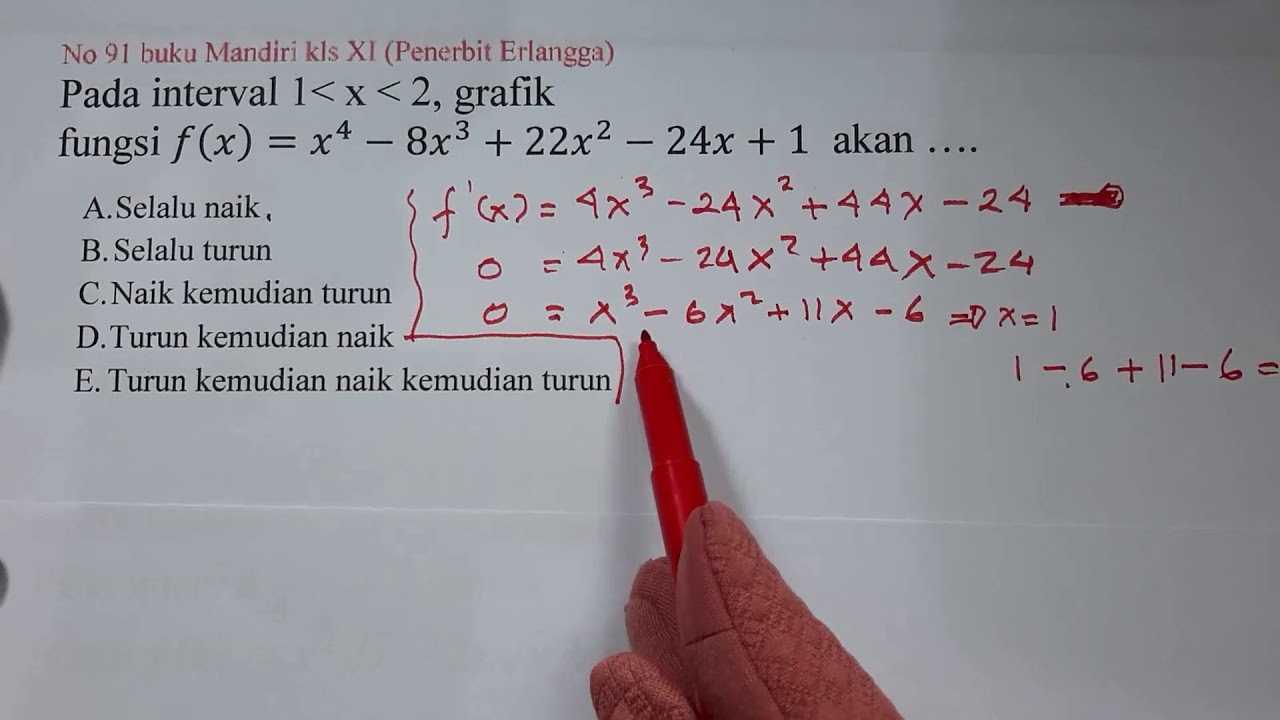 No 91 buku Mandiri kls XI (Penerbit Erlangga)
Pada interval 1< x < 2, grafik
fungsi f(x) = x⁴ − 8x³ + 22x² − 24x + 1 akan ….
A.Selalu naik
B.Selalu turun
C.Naik kemudian turun
D.Turun kemudian naik
E. Turun kemudian naik kemudian turun
f'(x) = 4x³ - 24x² + 44x - 24
0 = 4x³ - 24x² + 44x - 24
0 = x³ - 6x² + 11x - 6 ⇒ x = 1
1 - 6 + 11 - 6 =